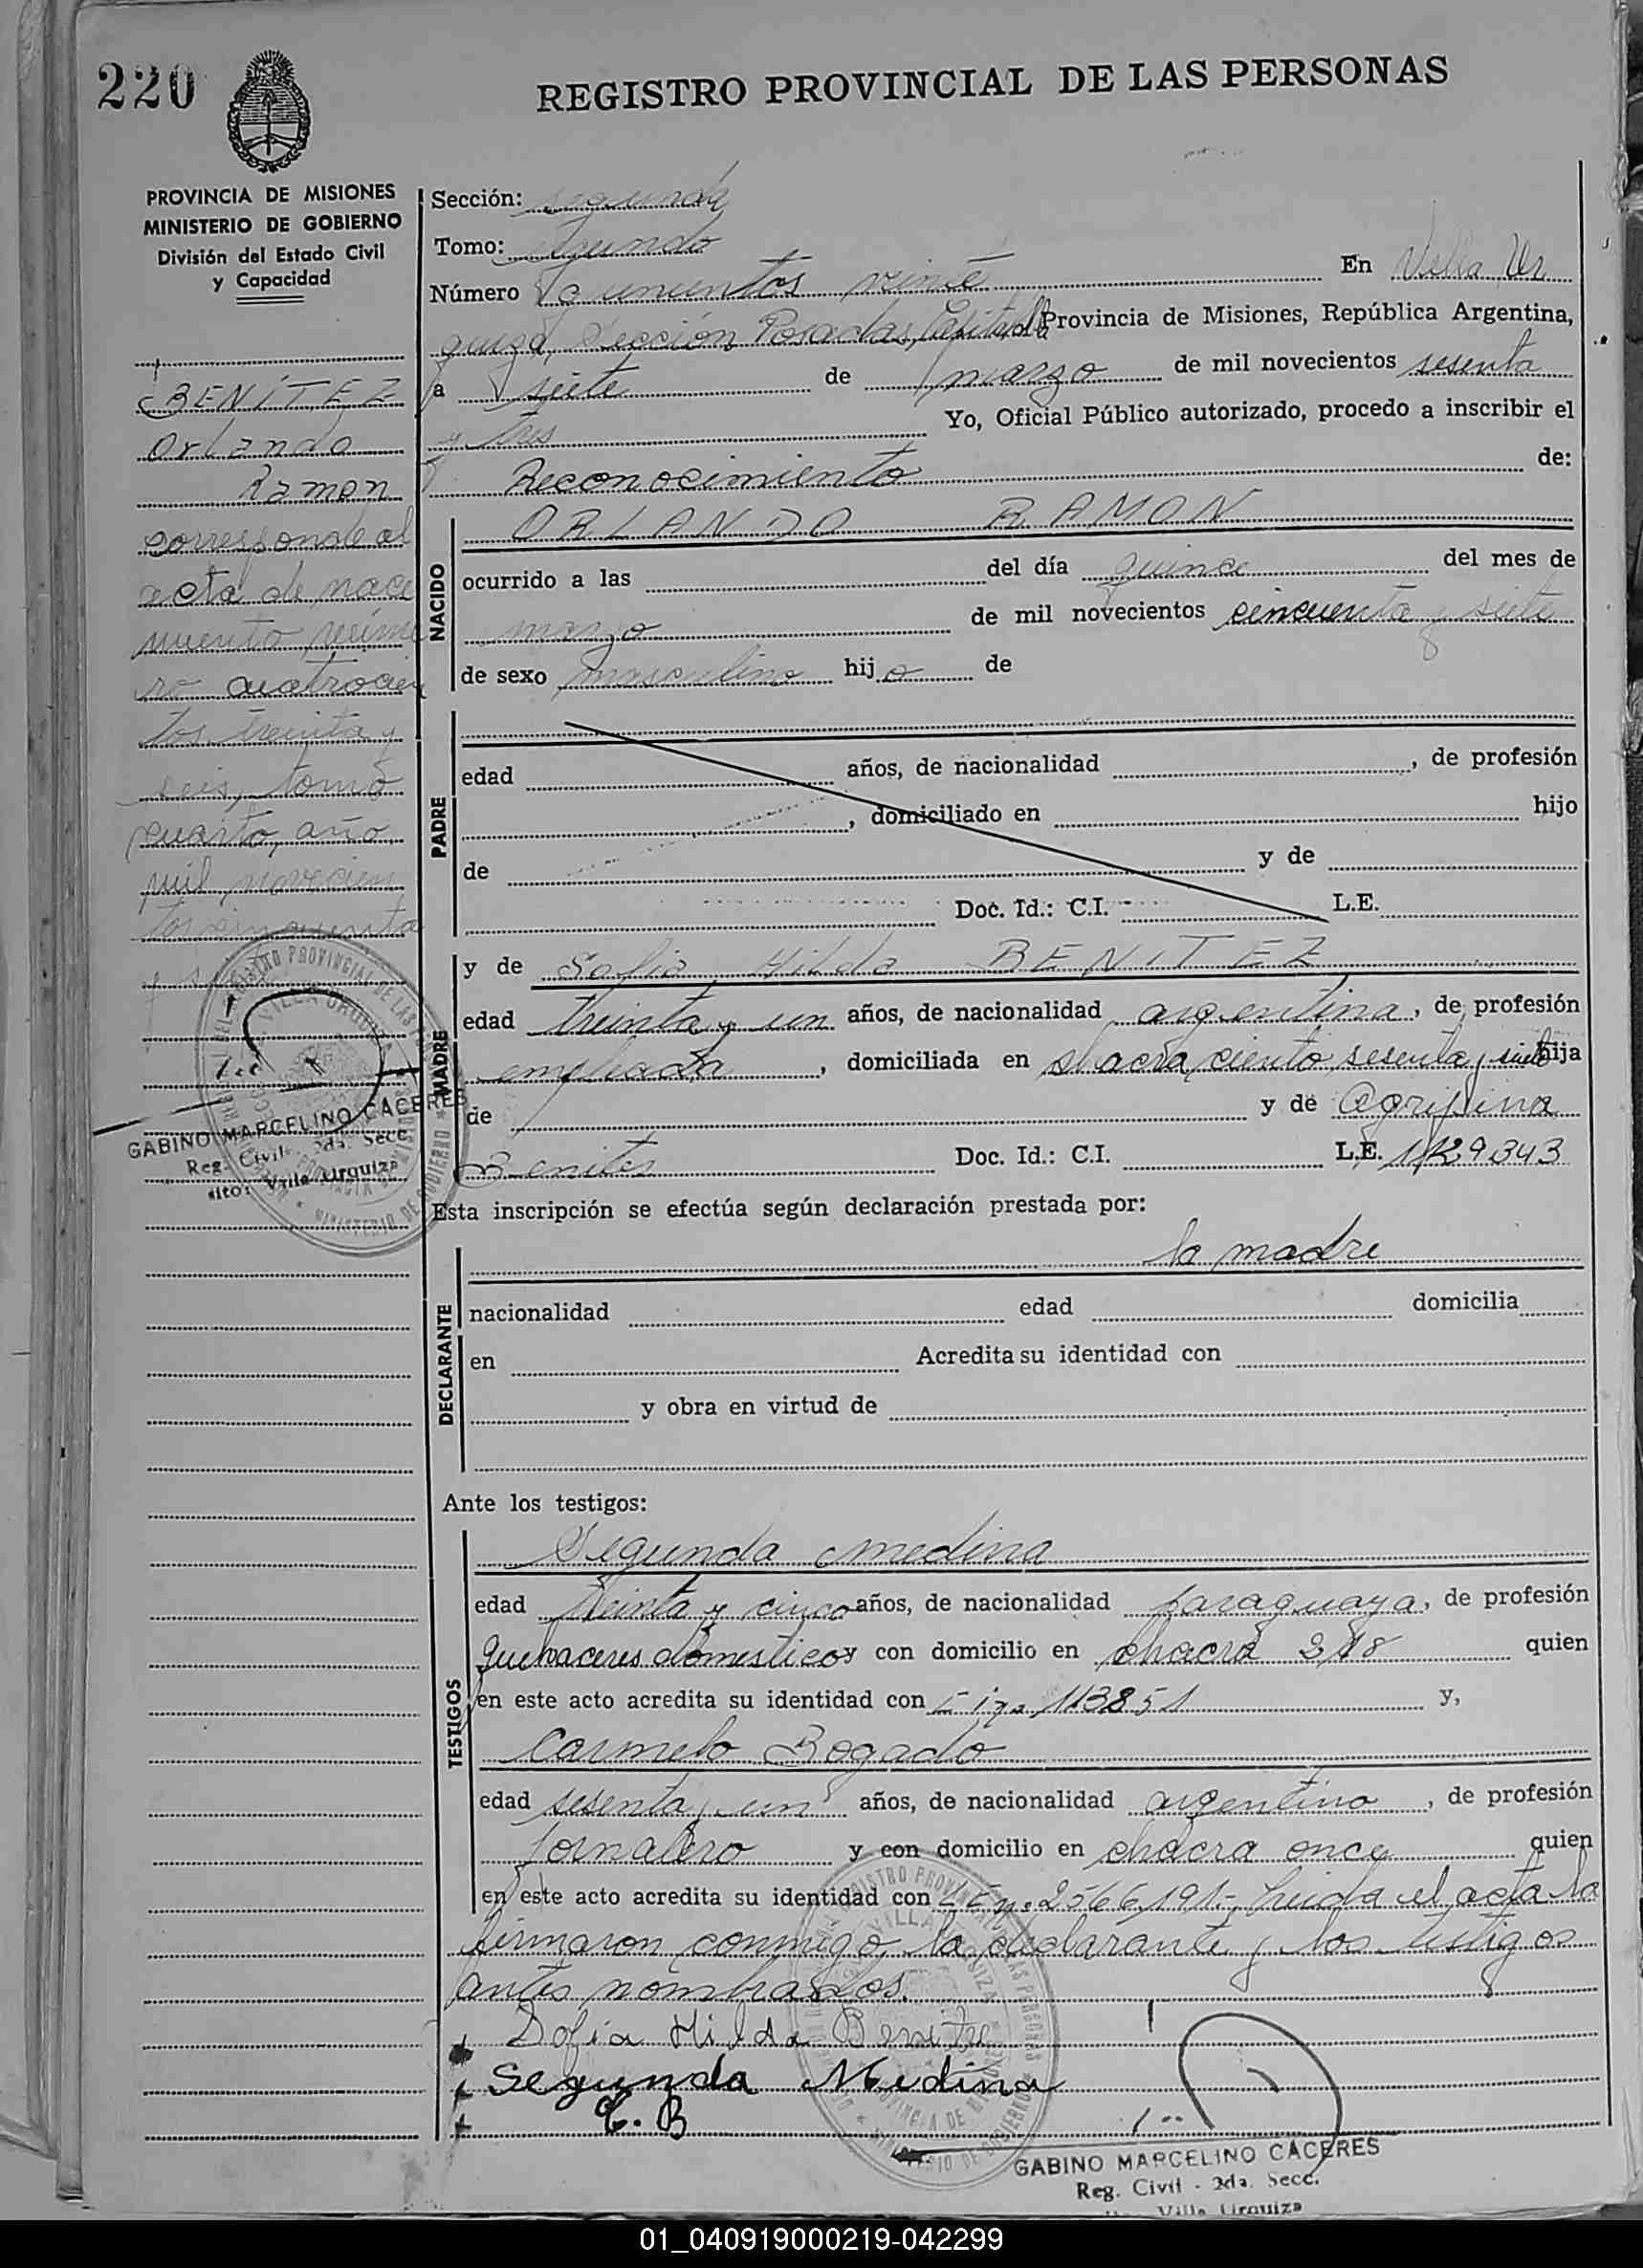 220
REGISTRO PROVINCIAL DE LAS PERSONAS
PROVINCIA DE MISIONES
MINISTERIO DE GOBIERNO
División del Estado Civil
y Capacidad
BENÍTEZ
Orlando
Ramon
corresponde al
acta de naci
miento núme
ro cuatrocien
tos treinta y
seis, tomo
cuarto, año
mil novecien
tos cincuenta
GABINO MARCELINO CACERES
Reg. Civil 2da. Secc.
Villa Urquiza
Sección: segunda
Tomo: segundo
Número doscientos veinte En Villa Ur
quiza, Sección Posadas, Capital Provincia de Misiones, República Argentina,
a siete de marzo de mil novecientos sesenta
y tres Yo, Oficial Público autorizado, procedo a inscribir el
Reconocimiento de:
NACIDO
ORLANDO RAMON
ocurrido a las del día quince del mes de
marzo de mil novecientos cincuenta y siete
de sexo masculino hijo de
PADRE
edad años, de nacionalidad , de profesión
, domiciliado en hijo
de y de
Doc. Id.: C.I. L.E.
MADRE
y de Sofia Hilda BENITEZ
edad treinta y un años, de nacionalidad argentina, de profesión
empleada, domiciliada en chacra ciento sesenta y siete hija
de y de Agripina
Benites Doc. Id.: C.I. L.E.
Esta inscripción se efectúa según declaración prestada por:
DECLARANTE
la madre
nacionalidad edad domicilia
en Acredita su identidad con
y obra en virtud de
Ante los testigos:
TESTIGOS
Segunda Medina
edad treinta y cinco años, de nacionalidad paraguaya, de profesión
quehaceres domesticos y con domicilio en chacra 218 quien
en este acto acredita su identidad con 113851 y,
Carmelo Bogado
edad sesenta y un años, de nacionalidad argentino, de profesión
jornalero y con domicilio en chacra once quien
en este acto acredita su identidad con LE nº 2566191- Leida el acta la
firmaron conmigo, la declarante y los testigos
antes nombrados.
Sofia Hilda Benitez
Segunda Medina
C. B
GABINO MARCELINO CACERES
Reg. Civil - 2da. Secc.
Villa Urquiza
01_040919000219-042299